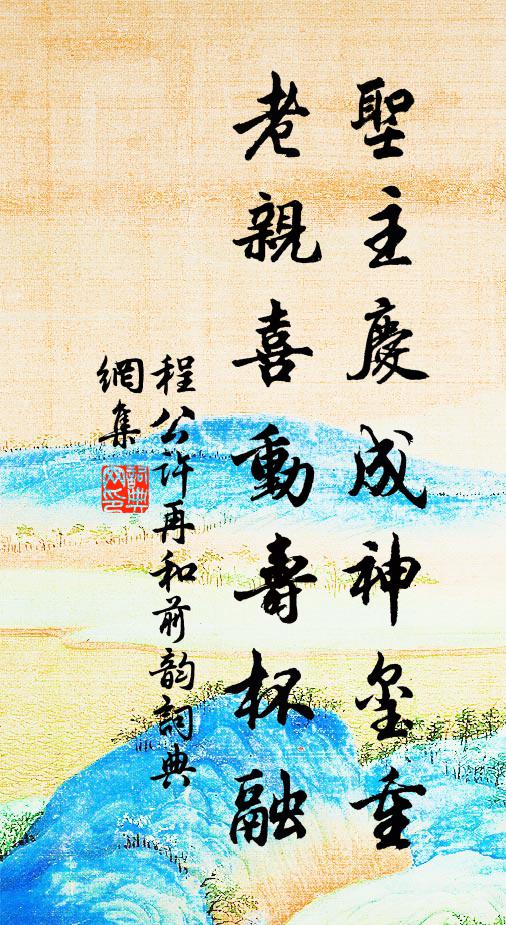 聖主慶成神璽重
老親喜動壽杯融
程公許再和前韵詞典
網集